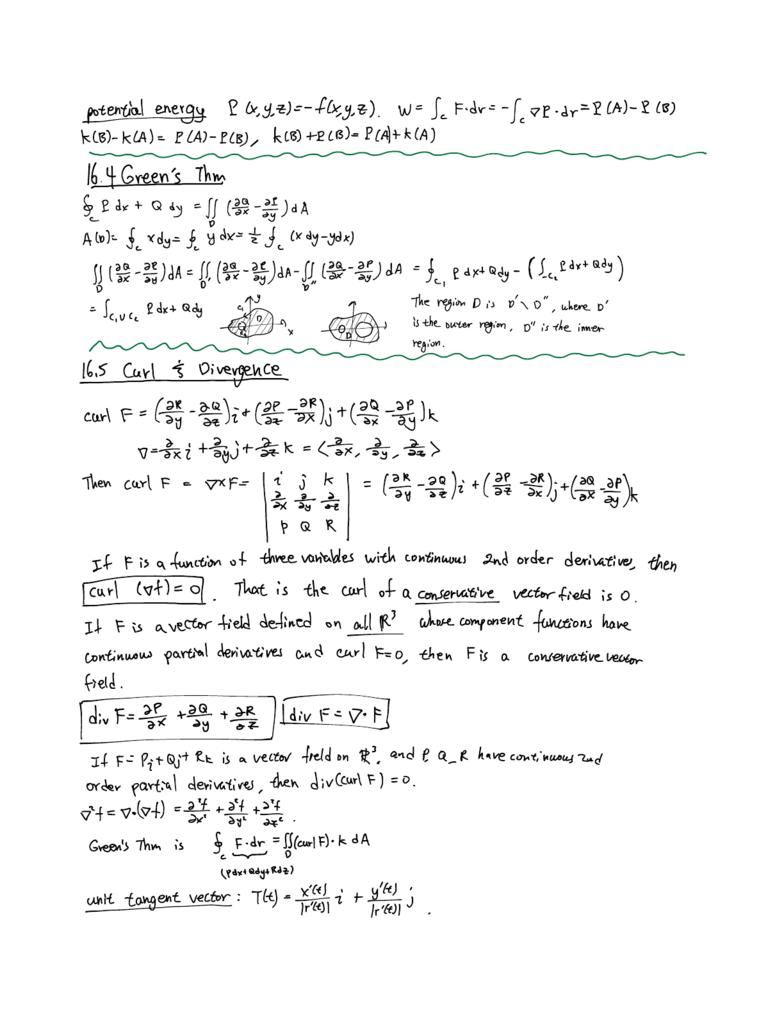 potential energy P(x,y,z)=-f(x,y,z). W=∫_c F·dr=-∫_c ∇P·dr=P(A)-P(B)
K(B)-K(A)=P(A)-P(B), K(B)+P(B)=P(A)+K(A)
16.4 Green's Thm
∮_c P dx + Q dy = ∬_D (∂Q/∂x - ∂P/∂y) dA
A(D)= ∮_c x dy = ∮_c y dx = 1/2 ∮_c (x dy-y dx)
∬_D (∂Q/∂x - ∂P/∂y) dA = ∬_D' (∂Q/∂x - ∂P/∂y) dA - ∬_D'' (∂Q/∂x - ∂P/∂y) dA = ∮_c1 P dx+Q dy - (∫_-c2 P dx+ Q dy)
= ∫_c1∪c2 P dx+ Q dy
y
x
D
D
The region D is D'\D'', where D'
is the outer region, D'' is the inner
region.
16.5 Curl & Divergence
curl F = (∂R/∂y - ∂Q/∂z)i + (∂P/∂z - ∂R/∂x)j + (∂Q/∂x - ∂P/∂y)k
∇ = ∂/∂x i + ∂/∂y j + ∂/∂z k = <∂/∂x, ∂/∂y, ∂/∂z>
Then curl F = ∇×F = | i j k | = (∂R/∂y - ∂Q/∂z)i + (∂P/∂z - ∂R/∂x)j + (∂Q/∂x - ∂P/∂y)k
∂/∂x ∂/∂y ∂/∂z
P Q R
If F is a function of three variables with continuous 2nd order derivative, then
curl (∇f)=0. That is the curl of a conservative vector field is 0.
If F is a vector field defined on all ℝ³ whose component functions have
continuous partial derivatives and curl F=0, then F is a conservative vector
field.
div F = ∂P/∂x + ∂Q/∂y + ∂R/∂z div F = ∇·F
If F= Pi+Qj+Rk is a vector field on ℝ³, and P Q_R have continuous 2nd
order partial derivatives, then div(curl F) = 0.
∇²f = ∇·(∇f) = ∂²f/∂x² + ∂²f/∂y² + ∂²f/∂z².
Green's Thm is ∮_c F·dr = ∬_D (curl F)·k dA
(Pdx+Qdy+Rdz)
unit tangent vector : T(t) = x'(t)/|r'(t)| i + y'(t)/|r'(t)| j.